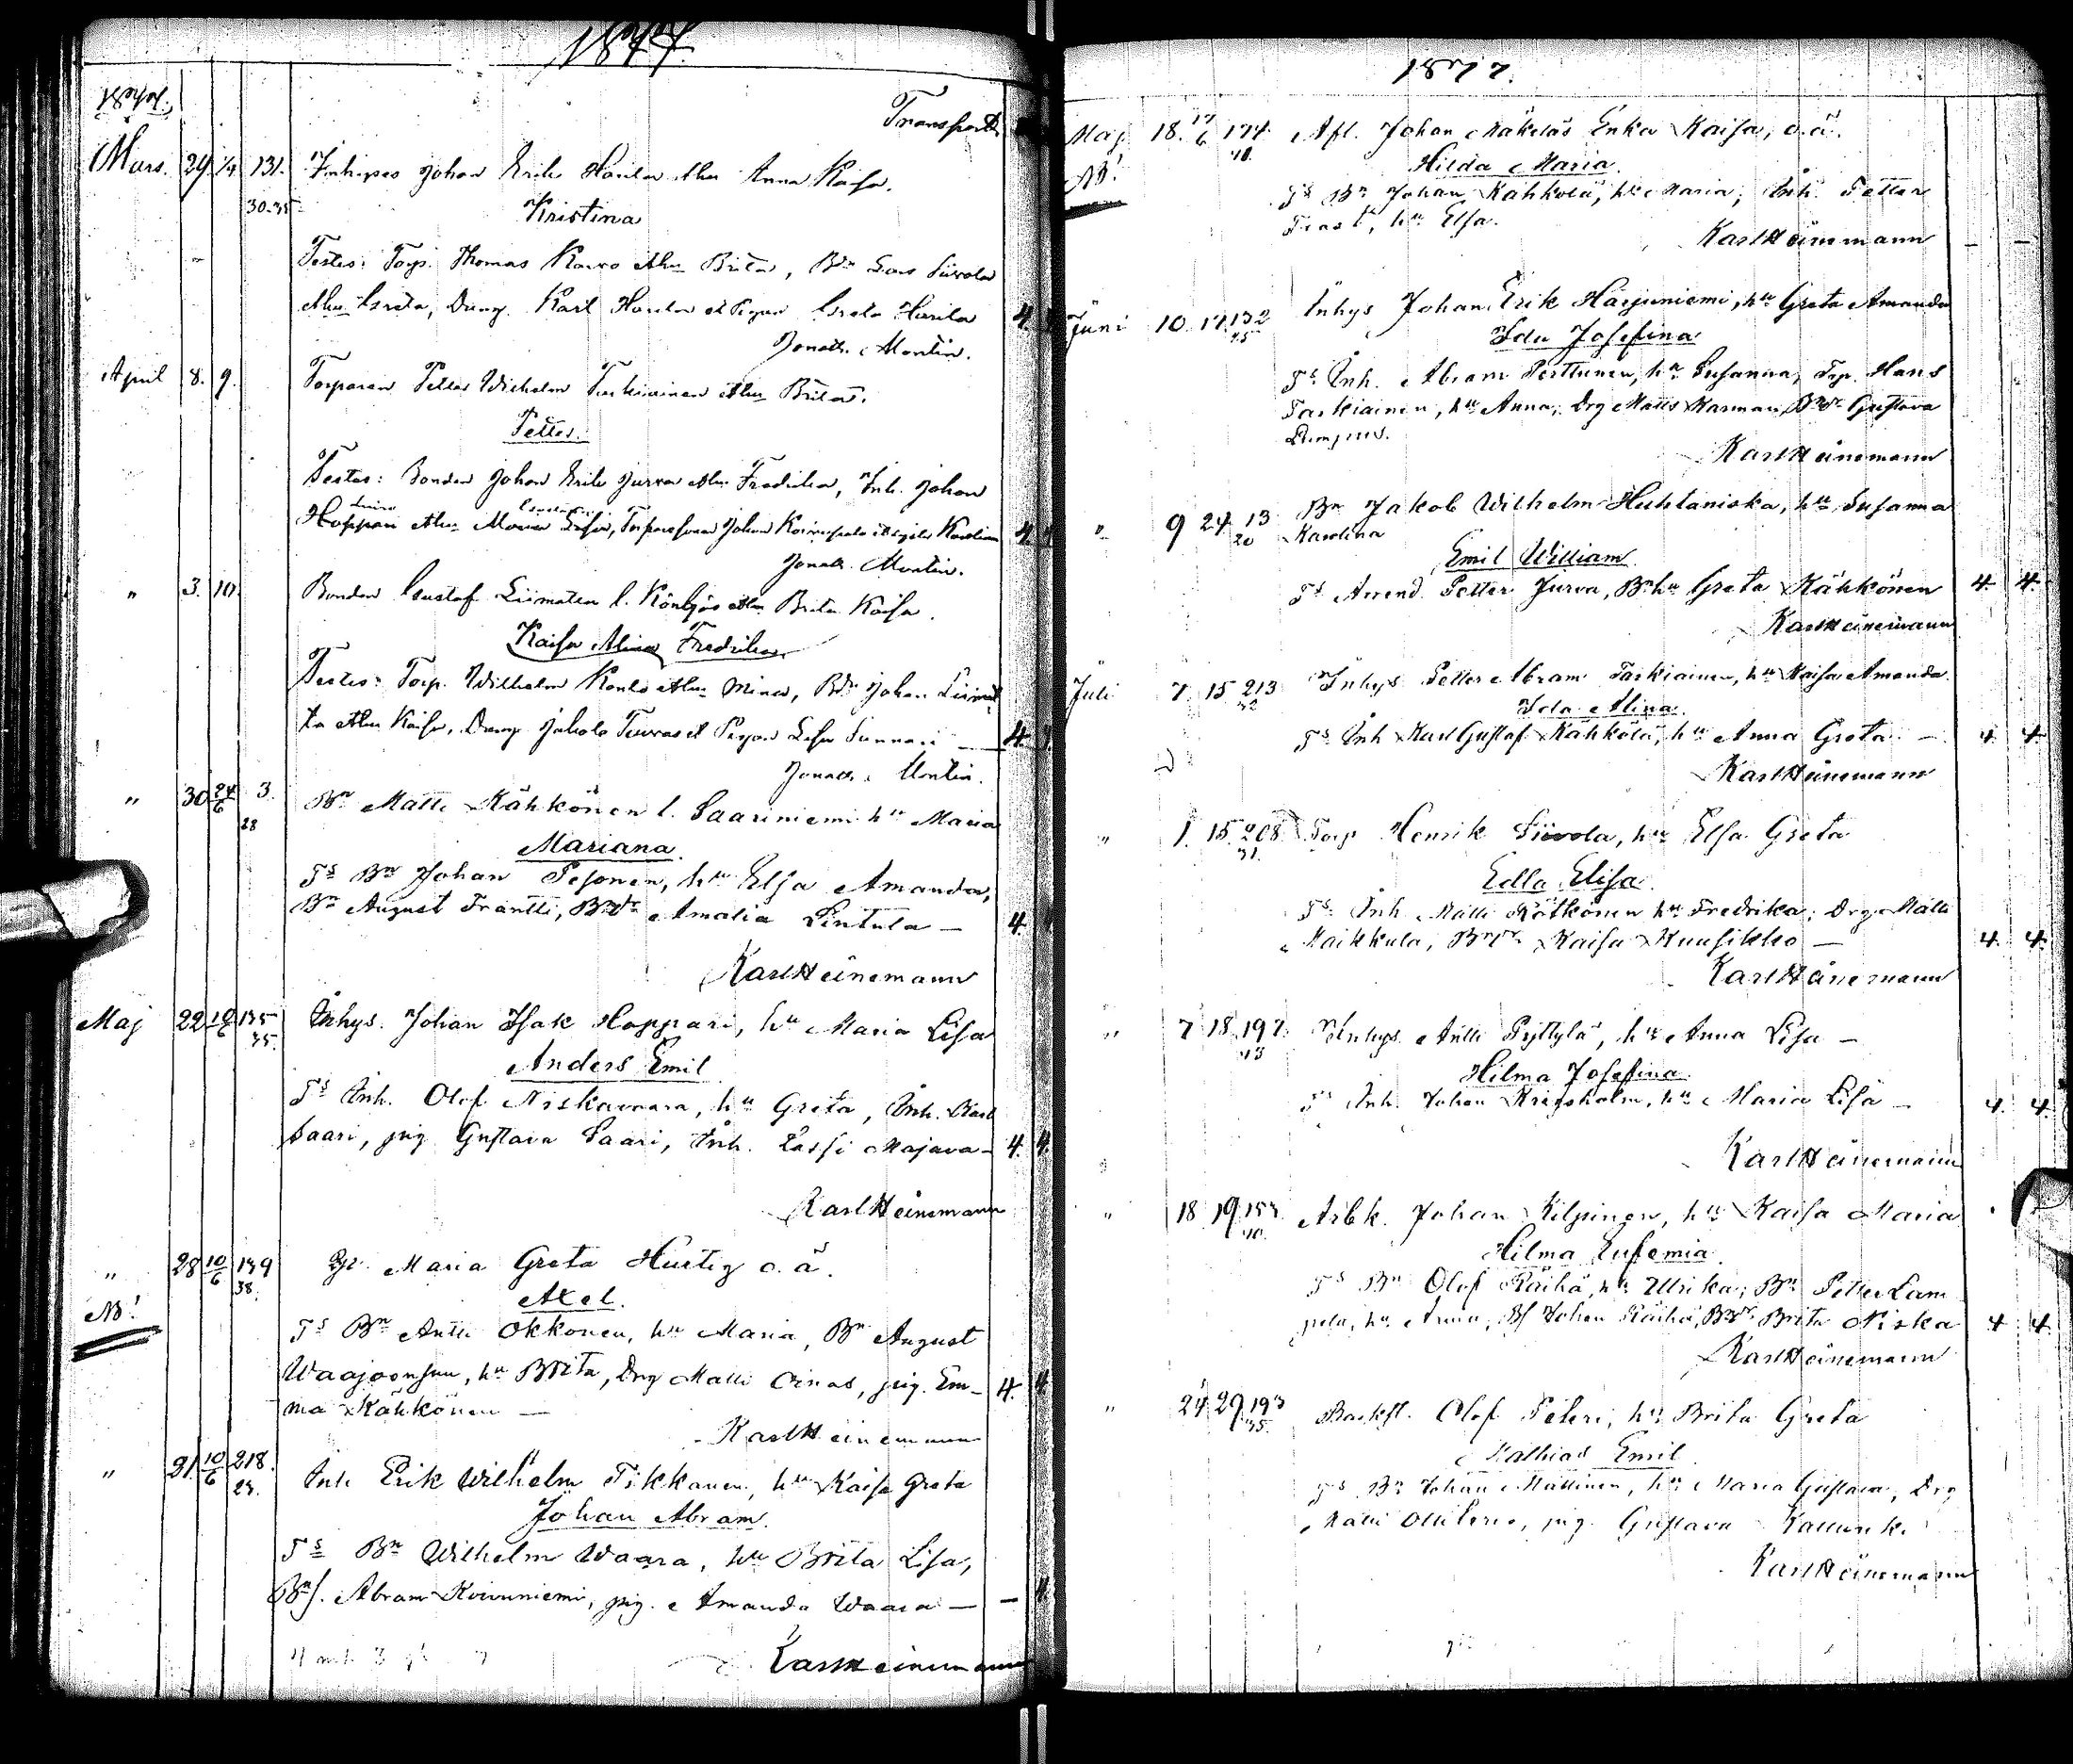 1877.
Transport
Mars. 29 1/4 131. Inhyses Johan Erik Harila hu Anna Kaisa.
30-35
Kristina
Testes: Torp. Thomas Karvo hu Brita, Bdn Lars Siivola
hu Greta, Dräng. Karl Harila et Pigan Greta Harila 4.
Jonath. Montin.
April 8. 9. Torparen Petter Wilhelm Tarkiainen hu Brita.
Petter.
Testes: Bonden Johan Erik Jurva hu Fredrika, Inh. Johan
Hoppari hu Maria Lisa, Torparesonen Johan 4.
Jonath. Montin.
" 3. 10. Bonden Gustaf Liimatta l. hu Brita Kaisa.
Kaisa Alina Fredrika
Testes: Torp. Wilhelm hu Mina, Bdn Johan Liimat
ta hu Kaisa, Dräng Jakob et Pigan Lisa Sunnari — 4.
Jonath. Montin.
" 30 24/6 3. Bn Matti Kähkönen l. Saariniemi hu Maria
28
Mariana.
Ts Bn Johan Pesonen, hu Elsa Amanda,
Bn August Frantti, Bdr Amalia Lintula — 4.
Karl Heinemann
Maj 22 10/6 135 Inhys. Johan Isak Hoppari, hu Maria Lisa
35.
Anders Emil
Ts Inh. Olof Niskavaara, hu Greta, Inh. Karl
Saari, pig Gustava Saari, Inh. Lassi Majava — 4. 4.
Karl Heinemann
" 28 10/6 139 Maria Greta Hurtig o. ä.
38.
NB! Axel.
Ts Bn Antti Okkonen, hu Maria, Bn August
Waajoensuu, hu Brita, Drg Matti Oinas, pig. Em- 4. 4
ma Kähkönen —
Karl Heinemann
" 31 10/6 218. Inh Erik Wilhelm Tikkanen, hu Kaisa Greta
23.
Johan Abram.
Ts Bn Wilhelm Waara, hu Brita Lisa,
Bns. Abram Koivuniemi, pig. Amanda Waara — — 4.
Karl Heinemann
1877.
Maj 18. 17/6 174. Afl. Johan Mäkeläs Enka Kaisa, o. ä.
40.
NB! Hilda Maria.
Ts Bn Johan Kähkölä, hu Maria; Inh. Petter
hu Elsa.
Karl Heinemann — —
Juni 10. 17. 132 Inhys Johan Erik Harjuniemi, hu Greta Amanda
45
Ida Josefina
Ts Inh. Abram Perttunen, hu Susanna, Trp. Hans
Tarkiainen, hu Anna; Drg Matts Karman, Bdr Gustava
Karl Heinemann
" 9 24 13 Bn Jakob Wilhelm Huhtaniska, hu Susanna
20 Karolina
Emil William
Ts Arrend. Petter Jurva, Bnhu Greta Kähkönen 4. 4.
Karl Heinemann
Juli 7. 15. 213 Inhys Petter Abram Tarkiainen, hu Kaisa Amanda.
32
Ida Alina.
Ts Inh Karl Gustaf Kähkölä, hu Anna Greta — 4. 4.
Karl Heinemann
" 1. 15. 208 Torp Henrik Siivola, hu Elsa Greta
31.
Edla Elisa.
Ts Inh. Matti Rötkönen hu Fredrika; Drg. Matti
Maikkula, Bndr Kaisa Kuusikko — 4. 4.
Karl Heinemann
" 7 18. 197. Inhys. Antti Pyttylä, hu Anna Lisa —
43
Hilma Josefina.
Ts Inh. Johan Krigsholm, hu Maria Lisa — 4. 4.
Karl Heinemann
" 18 19 Arbk. Johan Kilpinen, hu Kaisa Maria
40.
Hilma Eufemia
Ts Bn Olof Räihä, hu Ulrika; Bn Petter Lam
pela, hu Anna, Bs Johan Räihä, Bdr Brita Niska 4 4.
Karl Heinemann
" 24 29 193 Backst. Olof Peteri, hu Brita Greta
35.
Mathias Emil
Ts Bn Johan Mattinen, hu Maria Gustava, Drg
Matti pig Gustava
Karl Heinemann